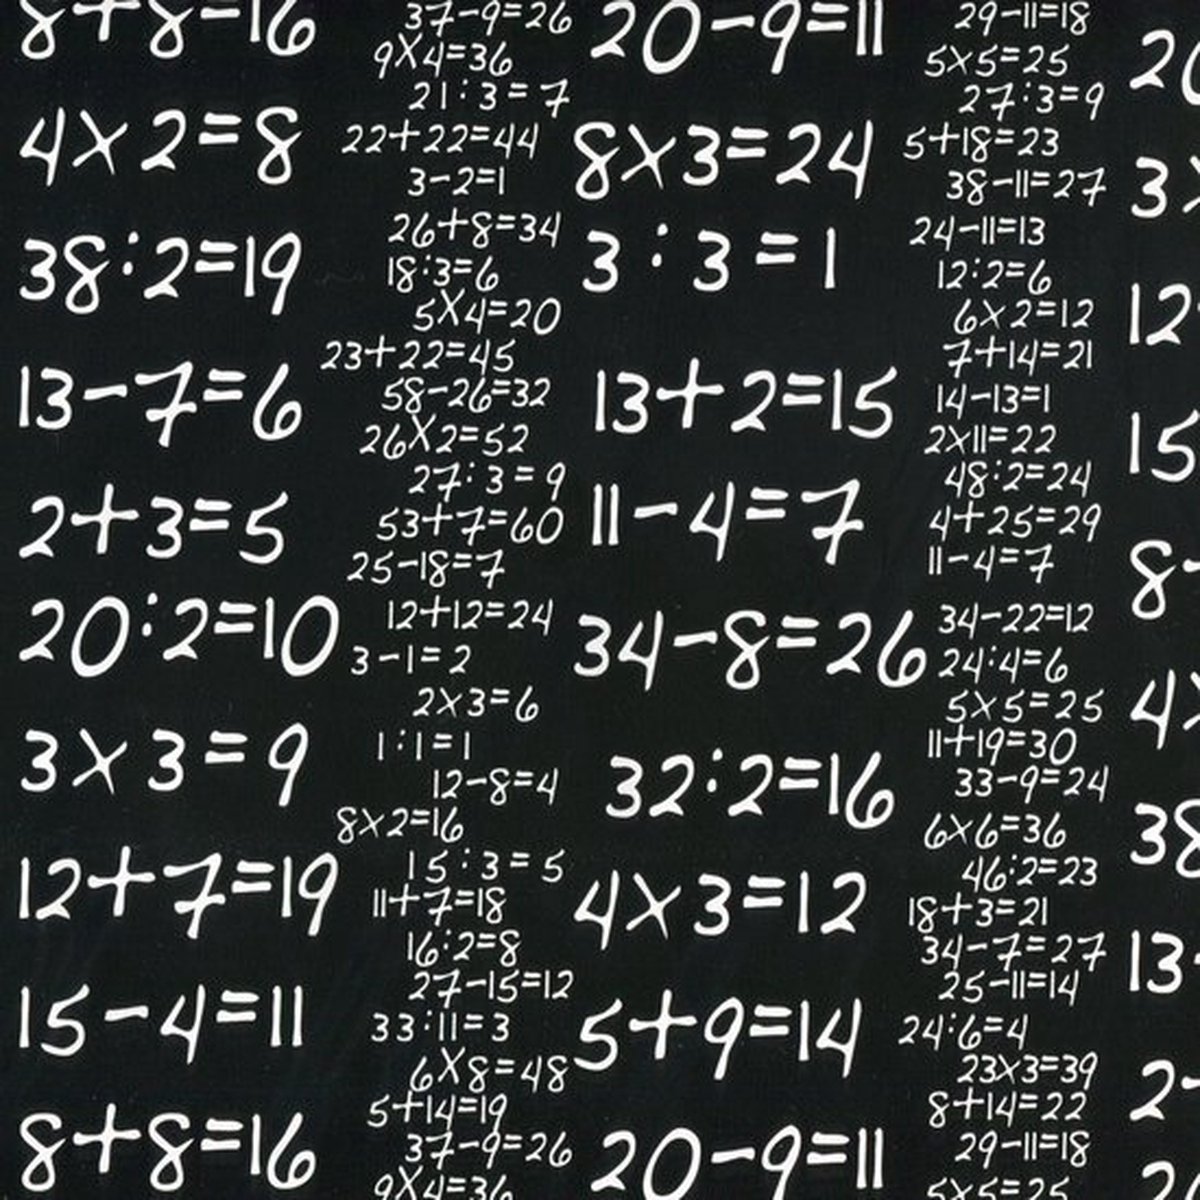 8+8=16
4×2=8
38:2=19
13-7=6
2+3=5
20:2=10
3×3=9
12+7=19
15-4=11
8+8=16
37-9=26
9×4=36
21:3=7
22+22=44
3-2=1
26+8=34
18:3=6
5×4=20
23+22=45
58-26=32
26×2=52
27:3=9
53+7=60
25-18=7
12+12=24
3-1=2
2×3=6
1:1=1
12-8=4
8×2=16
15:3=5
11+7=18
16:2=8
27-15=12
33:11=3
6×8=48
5+14=19
37-9=26
9×4=36
20-9=11
8×3=24
3:3=1
13+2=15
11-4=7
34-8=26
32:2=16
4×3=12
5+9=14
20-9=11
29-11=18
5×5=25
27:3=9
5+18=23
38-11=27
24-11=13
12:2=6
6×2=12
7+14=21
14-13=1
2×11=22
48:2=24
4+25=29
11-4=7
34-22=12
24:4=6
5×5=25
11+19=30
33-9=24
6×6=36
46:2=23
18+3=21
34-7=27
25-11=14
24:6=4
23×3=39
8+14=22
29-11=18
5×5=25
2
3×
12
15
8
4×
38
13
2
2